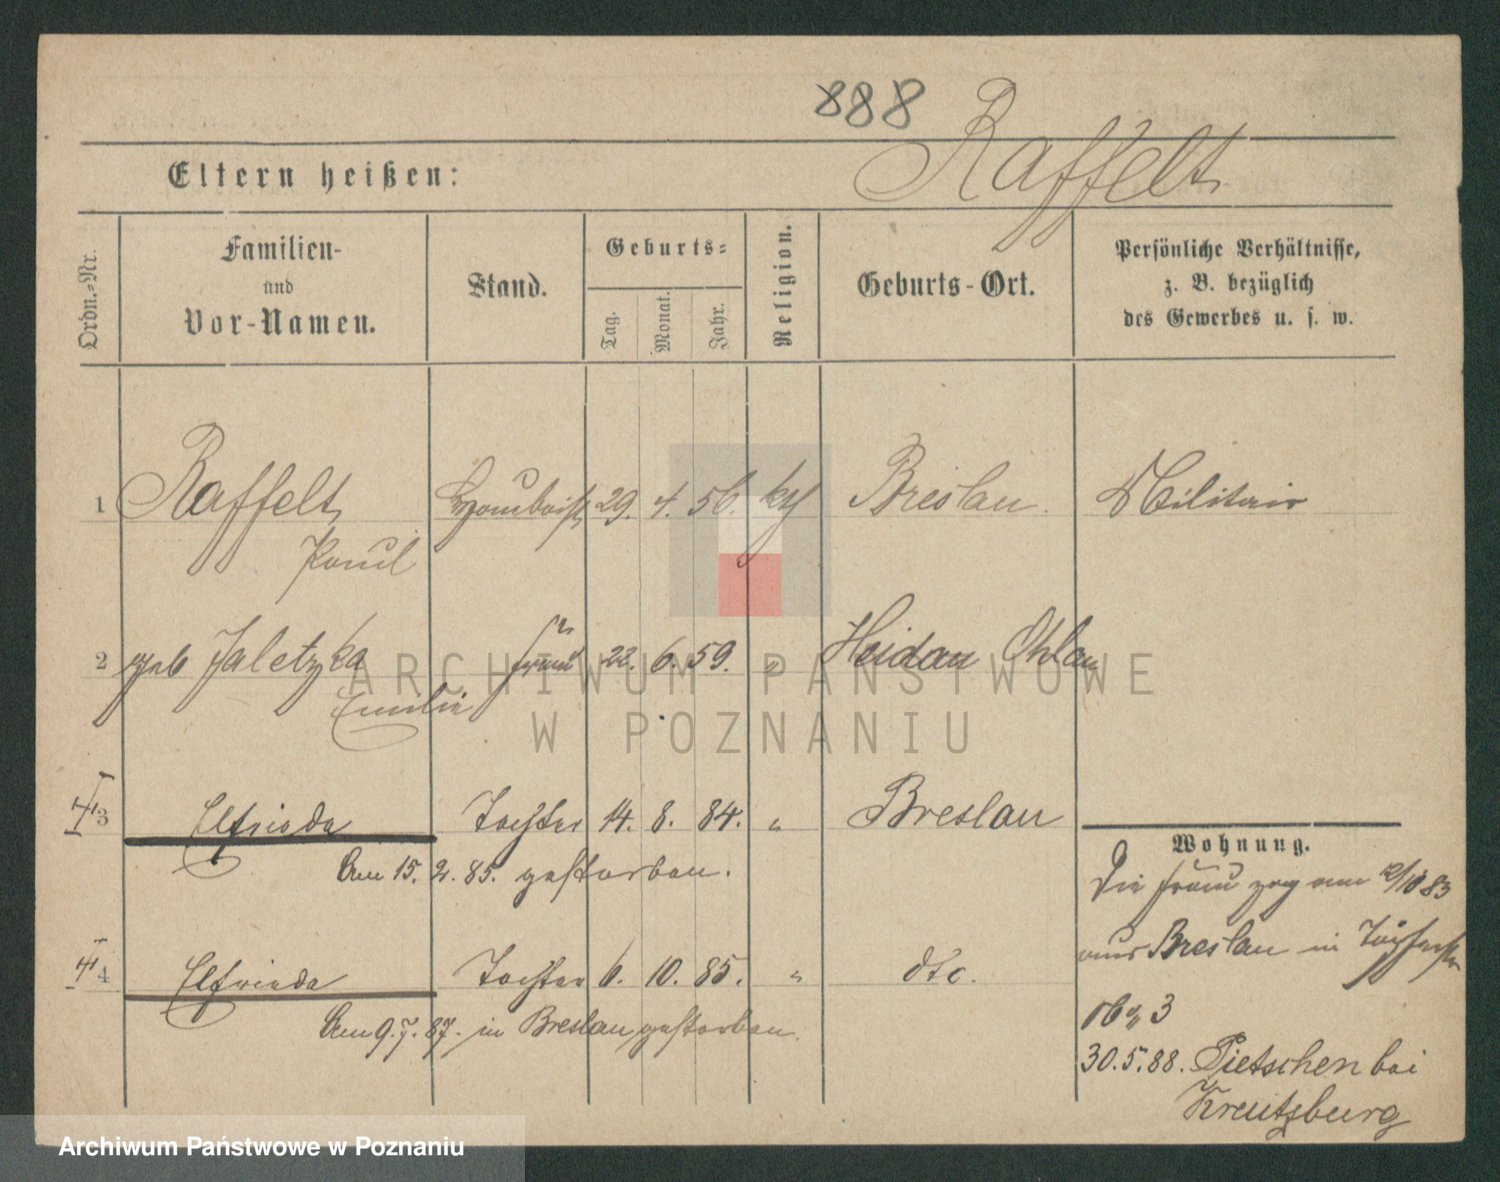 888
Raffelt
Eltern heißen:
Ordn.=Nr.
Familien-
und
Vor-Namen.
Stand.
Geburts=
Tag.
Monat.
Jahr.
Religion.
Geburts-Ort.
Persönliche Verhältnisse,
z. B. bezüglich
des Gewerbes u. s. w.
1 Raffelt 29. 4. 56. kth Breslau. Militair
Paul
2 geb Jaletzka Frau 22. 6. 59. " Heidau Ohlau
Emilie
3 Elfrieda Tochter 14. 8. 84. " Breslau
Am 15. 2. 85. gestorben.
4 Elfrieda Tochter 6. 10. 85. " dto.
Am 9. 7. 87. in Breslau gestorben.
Wohnung.
Die Frau zog am 83
aus Breslau in
3
30.5.88. Pietschen bei
Kreutzburg
ARCHIWUM PAŃSTWOWE
W POZNANIU
Archiwum Państwowe w Poznaniu